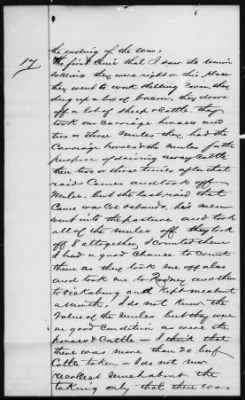 the ending of the war.
17
The first time that I saw the union
soldiers they were right on this place
they went to work shelling corn, they
dug up a lot of bacon, they drove
off a lot of sheep & cattle they
took our carriage horses and
two or three mules they had the
carriage horses & the mules for the
purpose of driving away cattle
then two or three times after that
raids came and took off
mules. but the last raid that
came was Co Osband's, his men
went into the pasture and took
all of the mules off they took
off 8 altogether, I counted them
I had a good chance to count
them as they took me off also
and took me to Rodney and then
to Vicksburg and kept me about
a month, I do not know the
value of the mules but they were
in good condition as were the
horses & cattle - I think that
there was more than 20 beef
cattle taken - I do not now
recollect much about the
taking only that there was